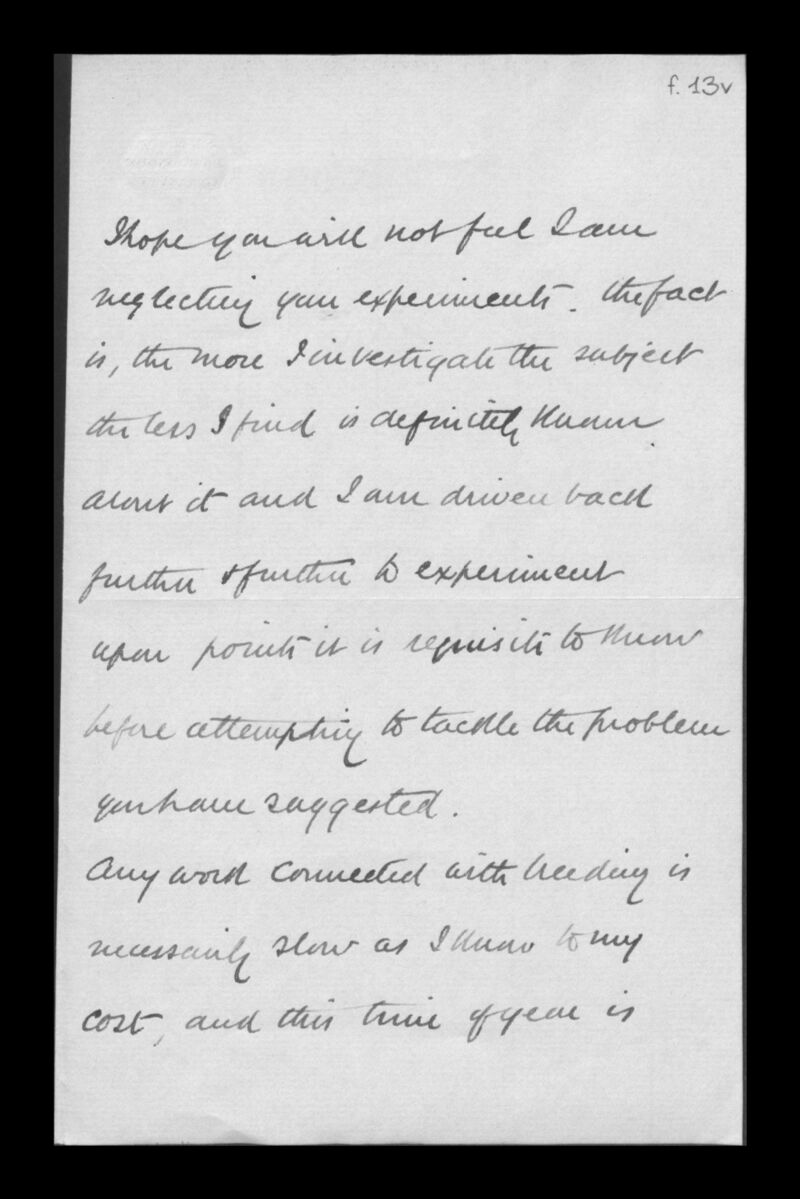 f. 13v
I hope you will not feel I am
neglecting your experiments. The fact
is, the more I investigate the subject
the less I find is definitely known
about it and I am driven back
further & further to experiment
upon points it is requisite to know
before attempting to tackle the problem
you have suggested.
Any work connected with breeding is
necessarily slow as I know to my
cost, and this time of year is